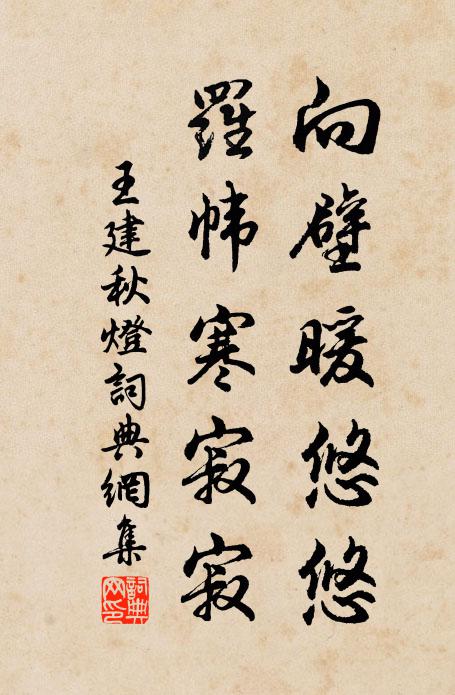 向壁暖悠悠
羅帏寒寂寂
王建秋燈詞典網集
詞典網印